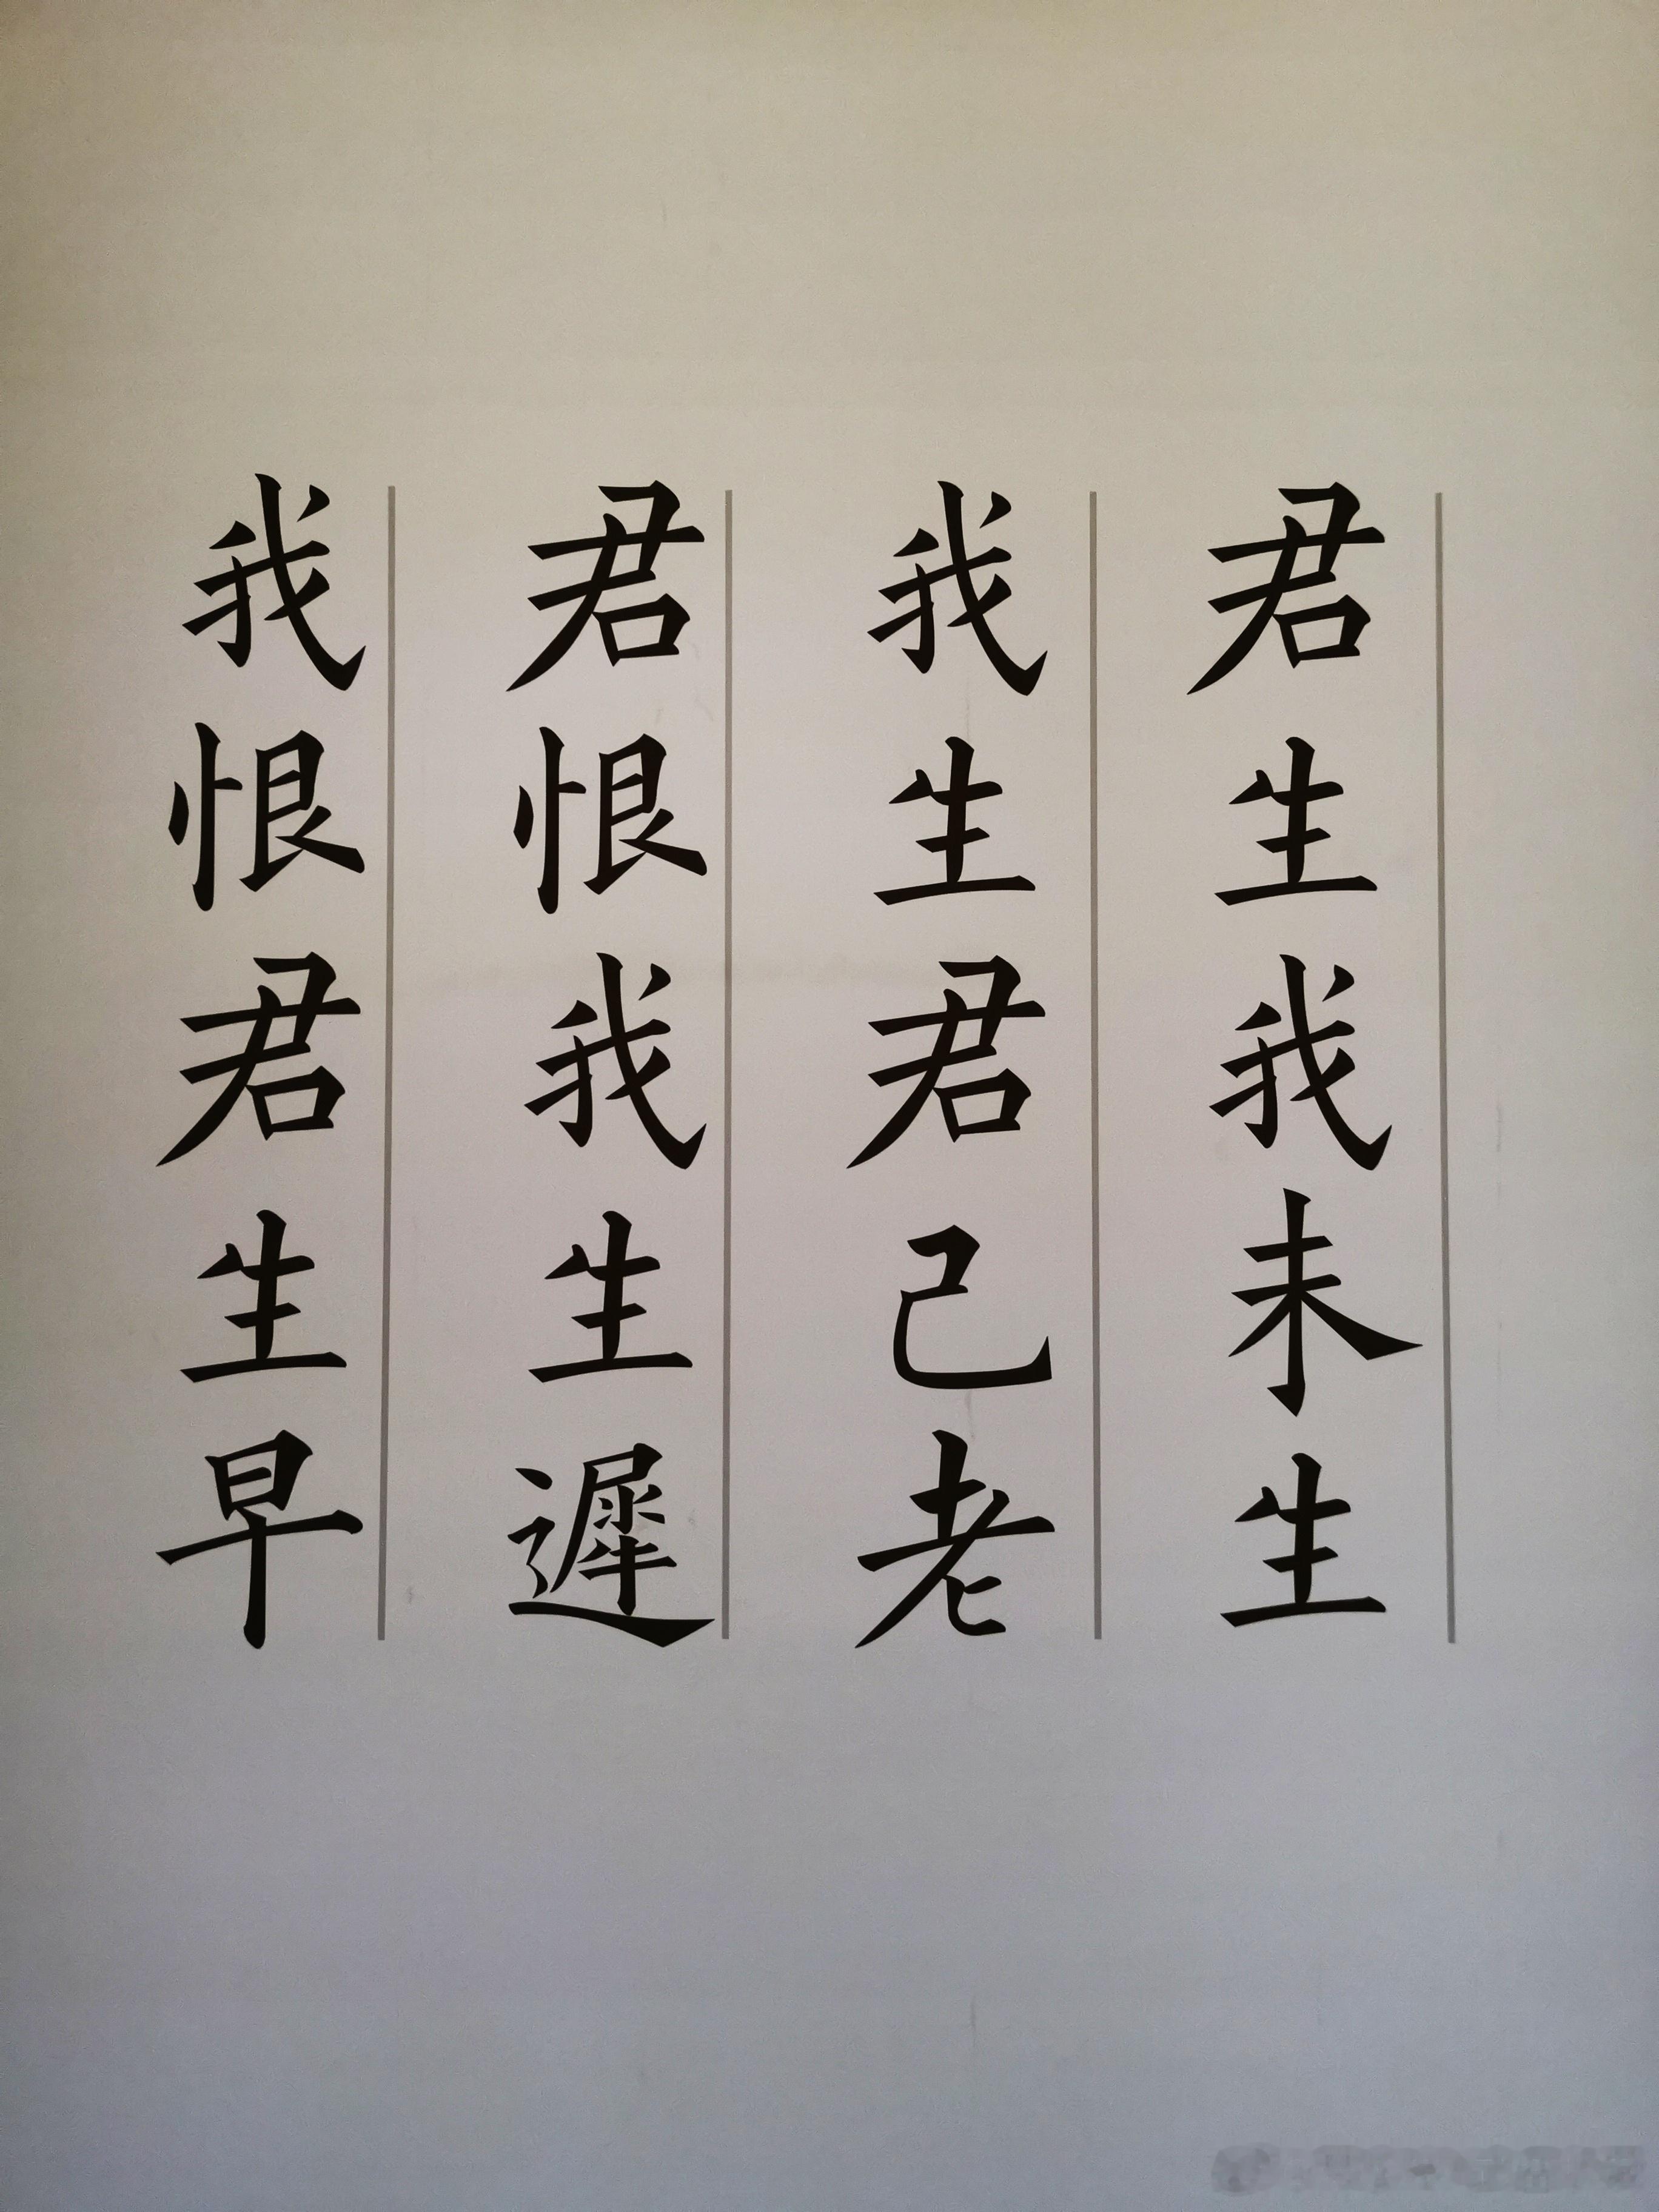 君生我未生
我生君己老
君恨我生遲
我恨君生早